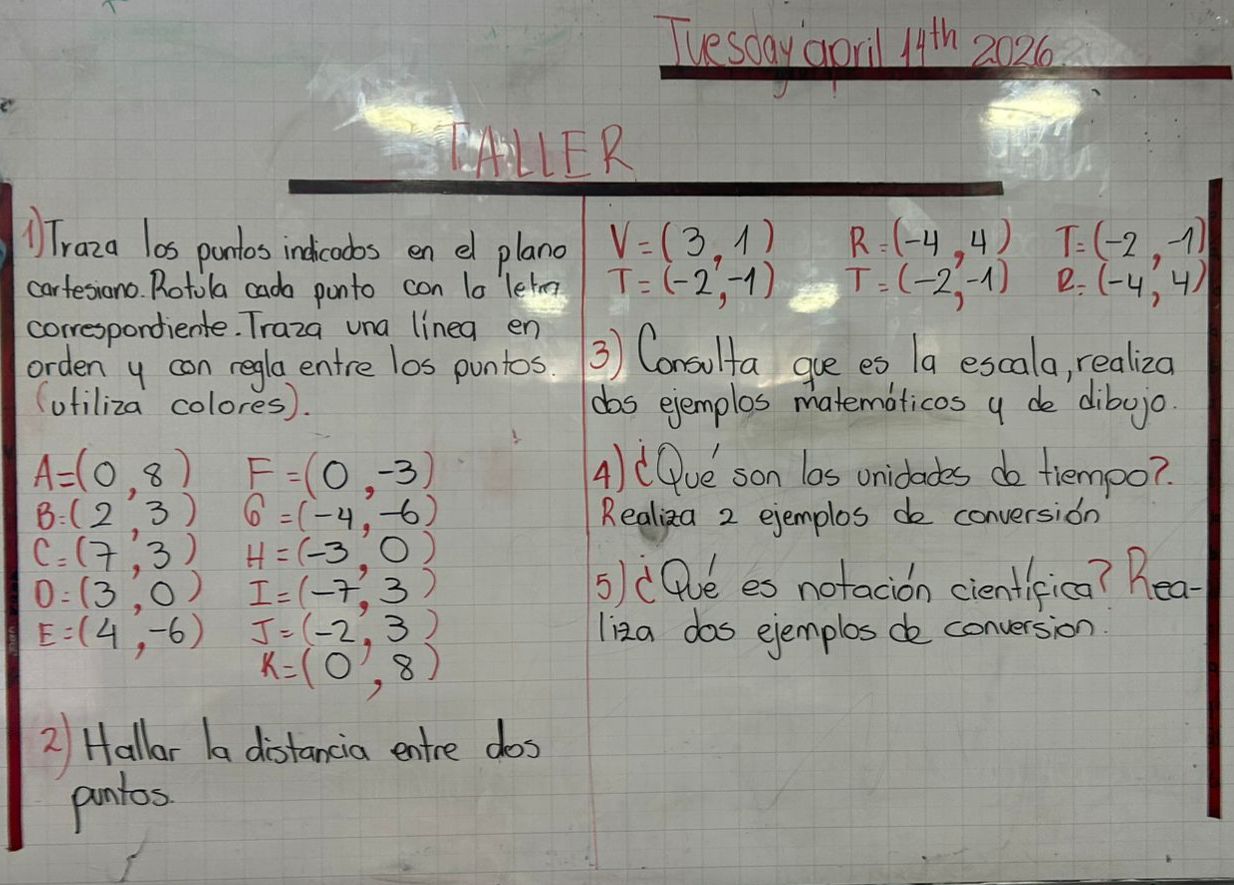 Tuesday april 14th 2026
TALLER
1) Traza los puntos indicados en el plano
cartesiano. Rotula cada punto con la letra
correspondiente. Traza una línea en
orden y con regla entre los puntos.
(utiliza colores).
A=(0,8) F=(0,-3)
B=(2,3) G=(-4,-6)
C=(7,3) H=(-3,0)
D=(3,0) I=(-7,3)
E=(4,-6) J=(-2,3)
K=(0,8)
2) Hallar la distancia entre dos
puntos.
V=(3,1) R=(-4,4) T=(-2,-1)
T=(-2,-1) T=(-2,-1) R=(-4,4)
3) Consulta que es la escala, realiza
dos ejemplos matemáticos y de dibujo.
4) ¿Qué son las unidades de tiempo?
Realiza 2 ejemplos de conversión
5) ¿Qué es notación científica? Rea-
liza dos ejemplos de conversion.